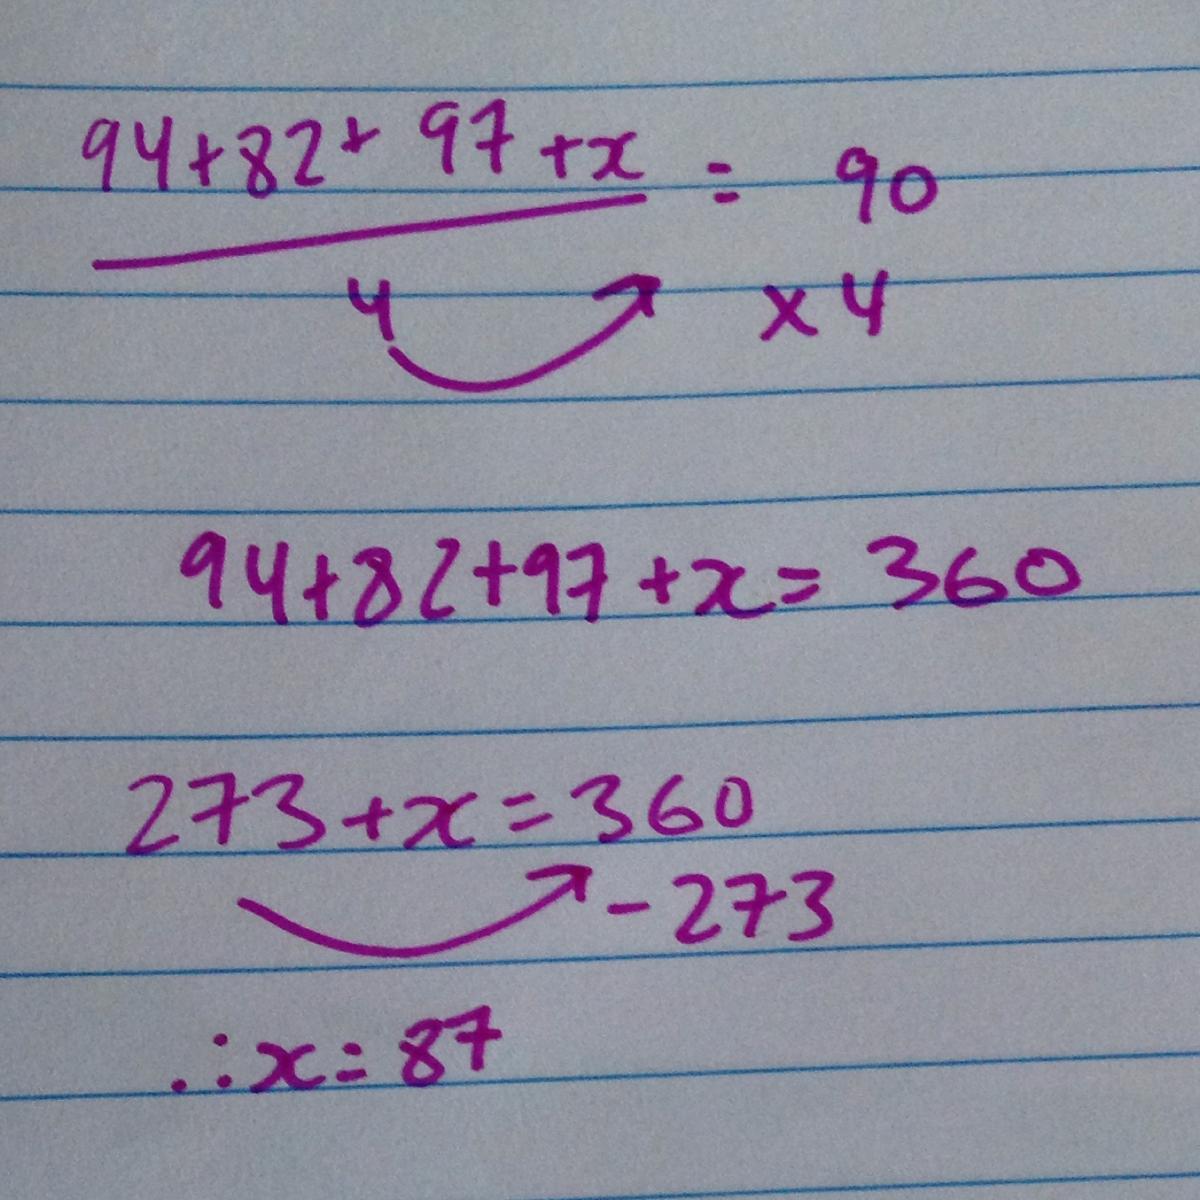 94+82+ 97 +x = 90
4 x 4
94+82+97+x= 360
273+x=360
-273
∴x=87